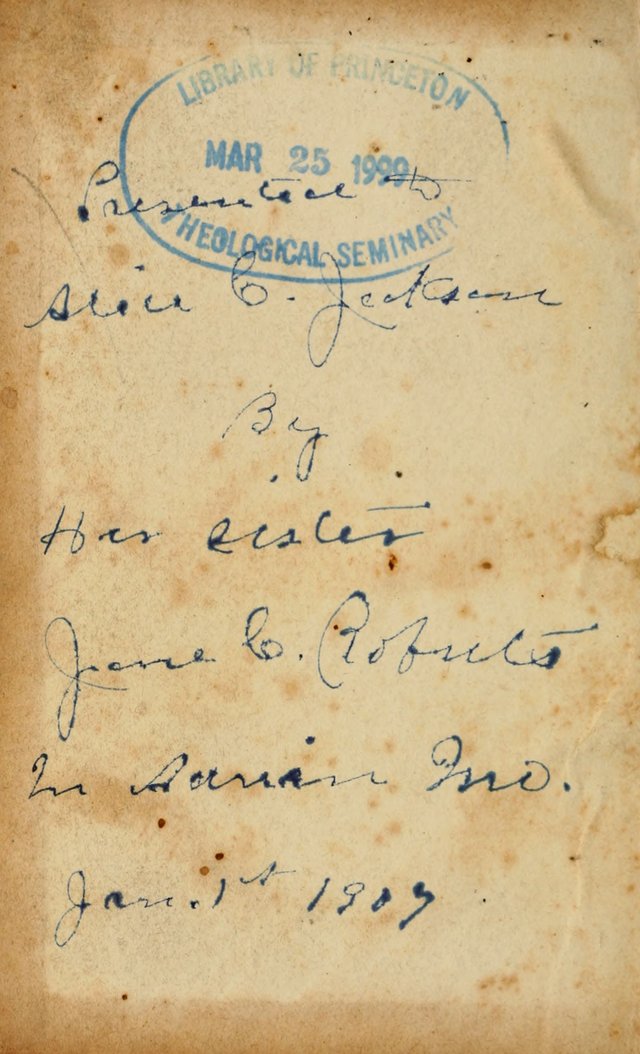 LIBRARY OF PRINCETON
MAR 25 1999
THEOLOGICAL SEMINARY
Presented to
Alice C. Jackson
By
Her sister
Jane C. Roberts
In Adrian Mo.
Jan. 1st 1907